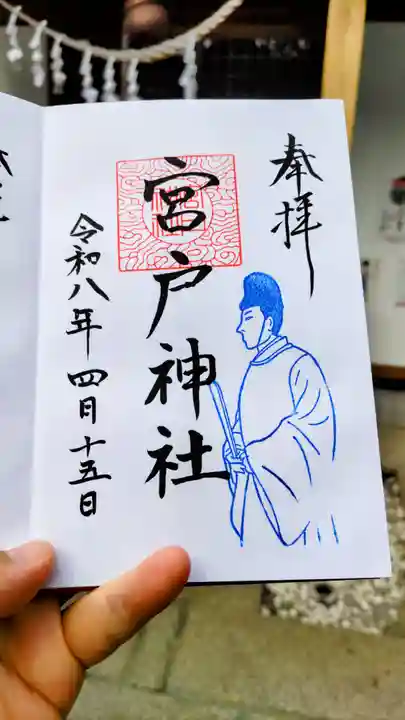 奉拝
宮戸神社
令和八年四月十五日